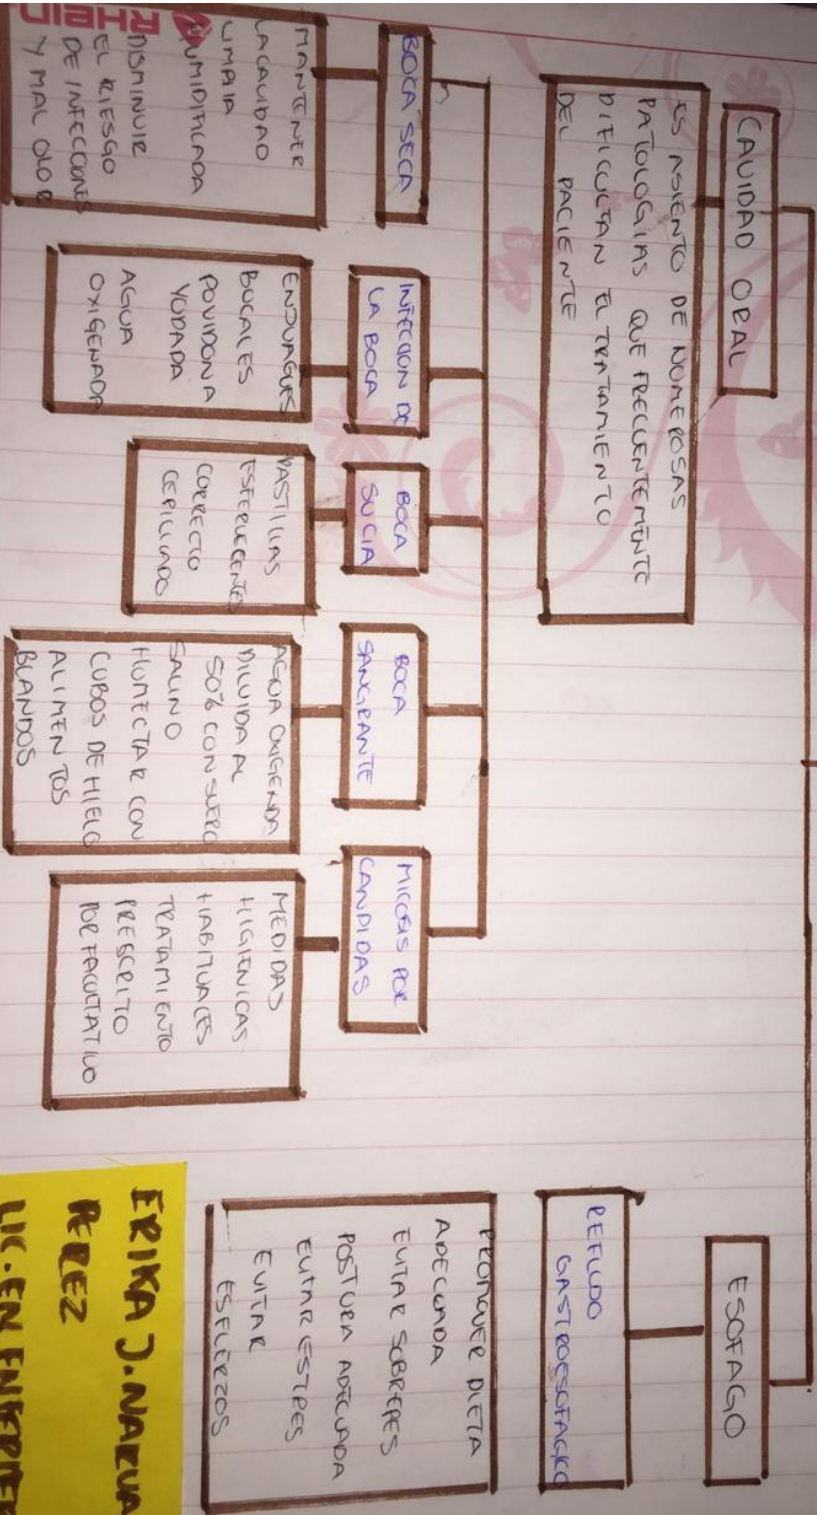 CAVIDAD ORAL
ES ASIENTO DE NUMEROSAS
PATOLOGIAS QUE FRECUENTEMENTE
DIFICULTAN EL TRATAMIENTO
DEL PACIENTE
BOCA SECA
MANTENER
LA CAVIDAD
LIMPIA
HUMIDIFICADA
DISMINUIR
EL RIESGO
DE INFECCIONES
Y MAL OLOR
INFECCION DE
LA BOCA
ENJUAGUES
BUCALES
POVIDONA
YODADA
AGUA
OXIGENADA
BOCA
SUCIA
PASTILLAS
ESFERVECENTES
CORRECTO
CEPILLADO
BOCA
SANGRANTE
AGUA OXIGENDA
DILUIDA AL
50% CON SUERO
SALINO
HUMECTAR CON
CUBOS DE HIELO
ALIMENTOS
BLANDOS
MICOSIS POR
CANDIDAS
MEDIDAS
HIGIENICAS
HABITUALES
TRATAMIENTO
PRESCRITO
POR FACULTATIVO
ESOFAGO
REFLUJO
GASTROESOFAGICO
PROMOVER DIETA
ADECUADA
EVITAR SOBREPES
POSTURA ADECUADA
EVITAR ESTRES
EVITAR
ESFUERZOS
ERIKA J. NARVA
PEREZ
LIC. EN ENFERMER
RHEIN